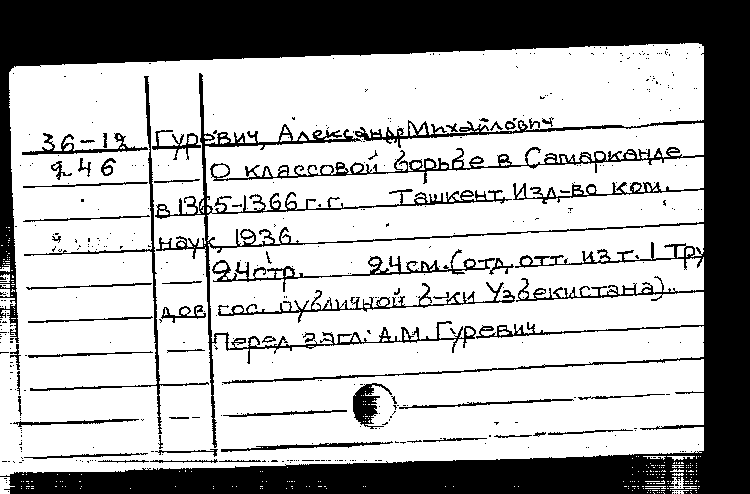 36-12 Гуревич, Александр Михайлович
246 О классовой борьбе в Самарканде
в 1365-1366 г.г. Ташкент, Изд-во ком.
наук, 1936.
24стр. 24см. (отд. отт. из т. 1 Тру
дов гос. публичной б-ки Узбекистана)..
Перед загл: А.М. Гуревич.